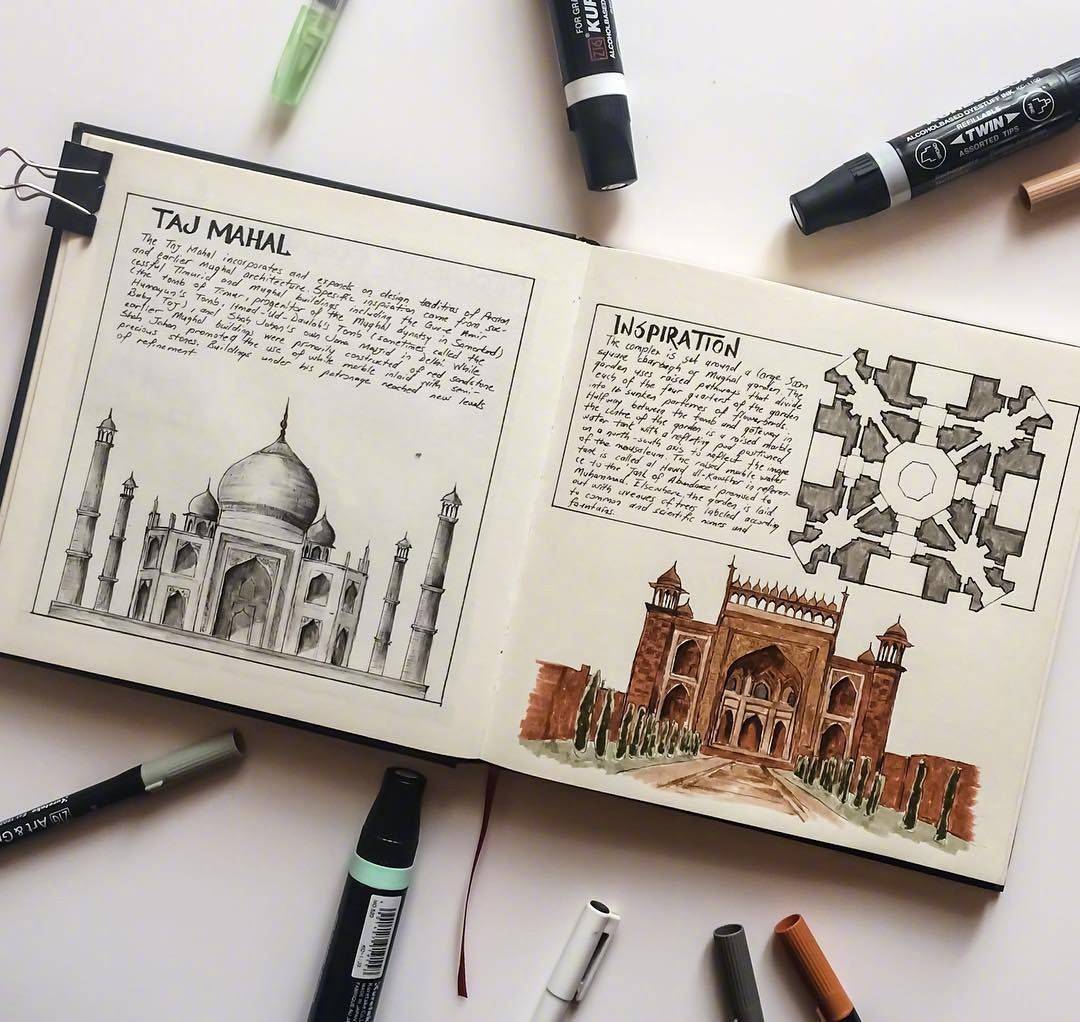 TAJ MAHAL
The Taj Mahal incorporates and expands on design traditios of Persian
and earlier Mughal architecture. Spesific inspiration came from suc-
cessful Timurid and Mughal buildings including the Gur-e Amir
(the tomb of Timur, progenitor of the Mughal dynasty in Samarkand)
Humayun's Tomb, Itmad-Ud-Daulah's Tomb (sometimes called the
Baby Taj), and Shah Jahan's own Jama Masjid in Delhi. While
earlier Mughal buildings were primarily constructed of red sandstone
Shah Jahan promoted the use of white marble inlaid with semi-
precious stones. Buildings under his patronage reached new levels
of refinement.
INSPIRATION
The complex is set around a large 300m
square charbagh or Mughal garden. The
garden uses raised pathways that divide
each of the four quarters of the garden
into 16 sunken parterres of flowerbeds.
Halfway between the tomb and gateway in
the centre of the garden is a raised marble
water tank with a reflecting pool positioned
on a north-south axis to reflect the image
of the mausoleum. The raised marble water
tank is called al Hawd al-Kawthar in referen-
ce to the Tank of Abundance promised to
Muhammad. Elsewhere, the garden is laid
out with avenues of trees labeled according
to common and scientific names and
fountains.
FOR GRA
ZIG KUR
ALCOHOLBASED
ALCOHOLBASED DYESTUFF INK
REFILLABLE
TWIN
ASSORTED TIPS
ZIG Art & Gr